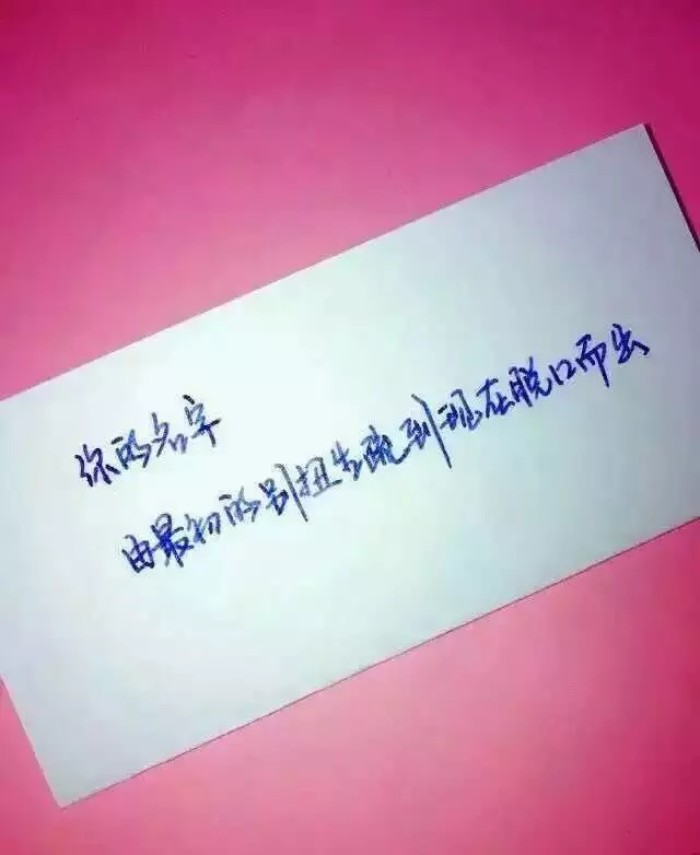 你的名字
由最初的别扭生疏到现在脱口而出